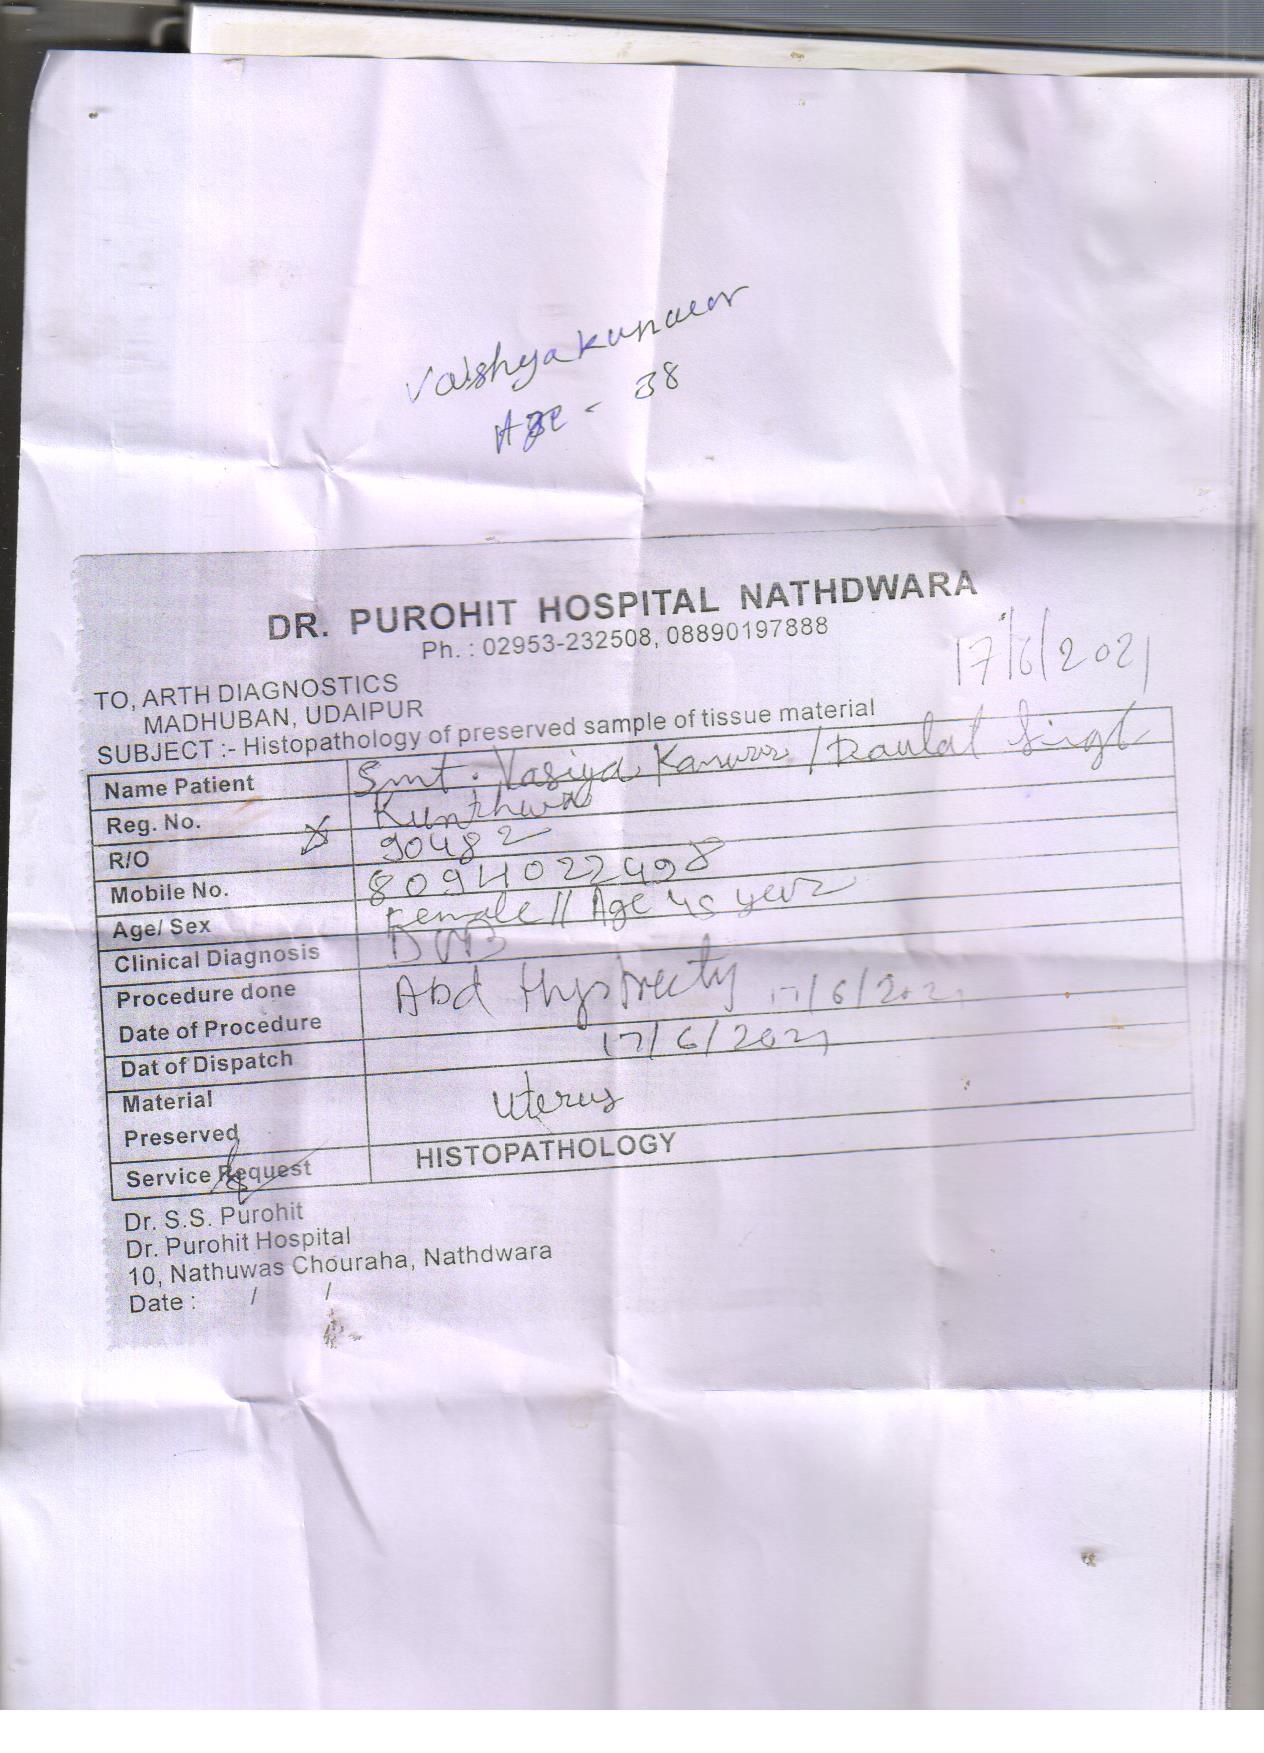 Vaishyakunwer
Age - 38
DR. PUROHIT HOSPITAL NATHDWARA
Ph. : 02953-232508, 08890197888
17/6/2021
TO, ARTH DIAGNOSTICS
MADHUBAN, UDAIPUR
SUBJECT :- Histopathology of preserved sample of tissue material
Name Patient Smt. Vasiya Kanwar / Daulat Singh
Reg. No. Kunthwa
R/O 90482
Mobile No. 8094022498
Age/ Sex Female // Age 45 year
Clinical Diagnosis DUB
Procedure done Abd Hystrecty 17/6/2021
Date of Procedure
Dat of Dispatch 17/6/2021
Material Uterus
Preserved
Service Request HISTOPATHOLOGY
Dr. S.S. Purohit
Dr. Purohit Hospital
10, Nathuwas Chouraha, Nathdwara
Date : / /